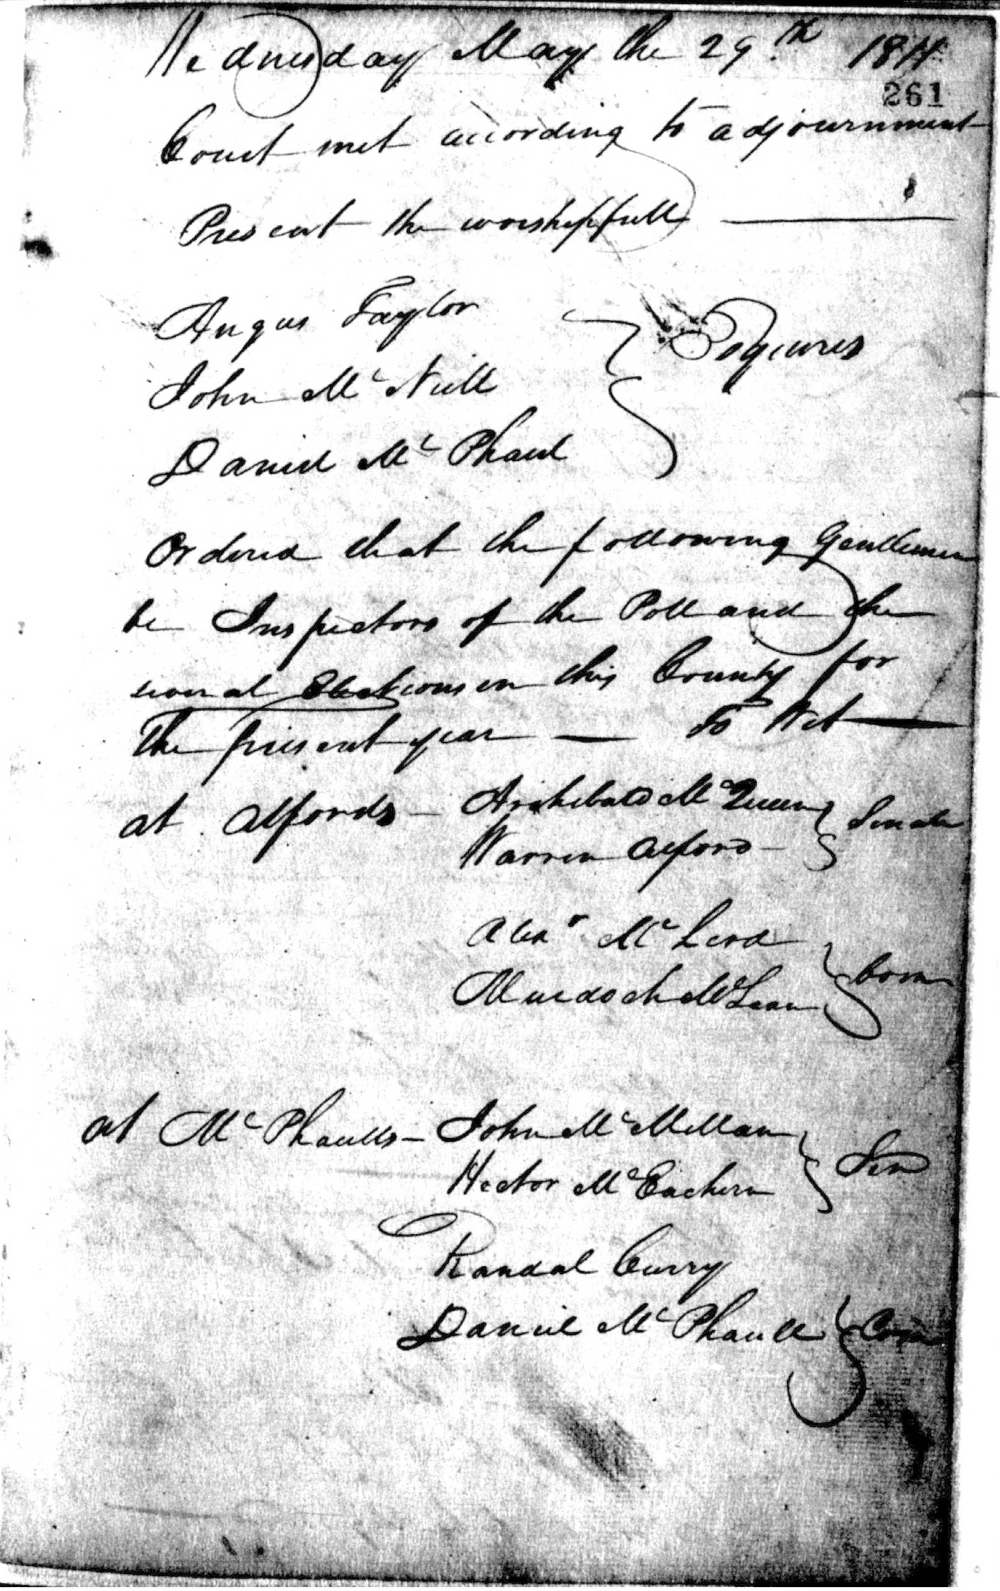 Wednesday May the 29th 1811
261
Court met according to adjournment
Present the worshipfull
Angus Taylor
John Mc Neill
Daniel Mc Phaul
Esquires
Ordered that the following Gentlemen
be Inspectors of the Poll and the
several Elections in this County for
the present year — To Wit —
at Alfords – Archibald McQueen
Warren Alford –
Senate
Alexr McLeod
Murdoch McLean
Com
at Mc Phaulls – John McMillan
Hector McEachern
Sen
Randal Curry
Daniel Mc Phaull
Com